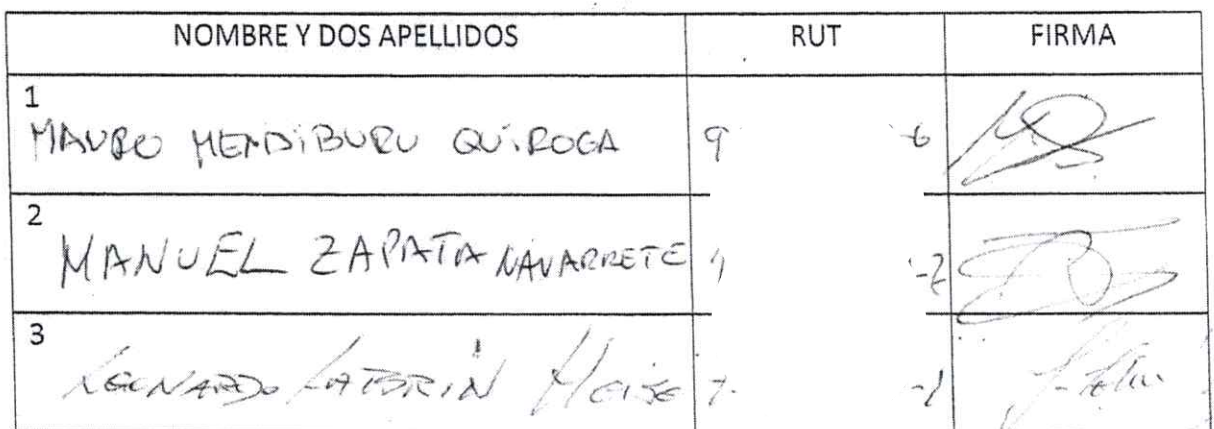 NOMBRE Y DOS APELLIDOS RUT FIRMA
1
MAURO MENDIBURU QUIROGA 9 -6
2
MANUEL ZAPATA NAVARRETE -2
3
LEONARDO LATORRIN HEISE 7. -1